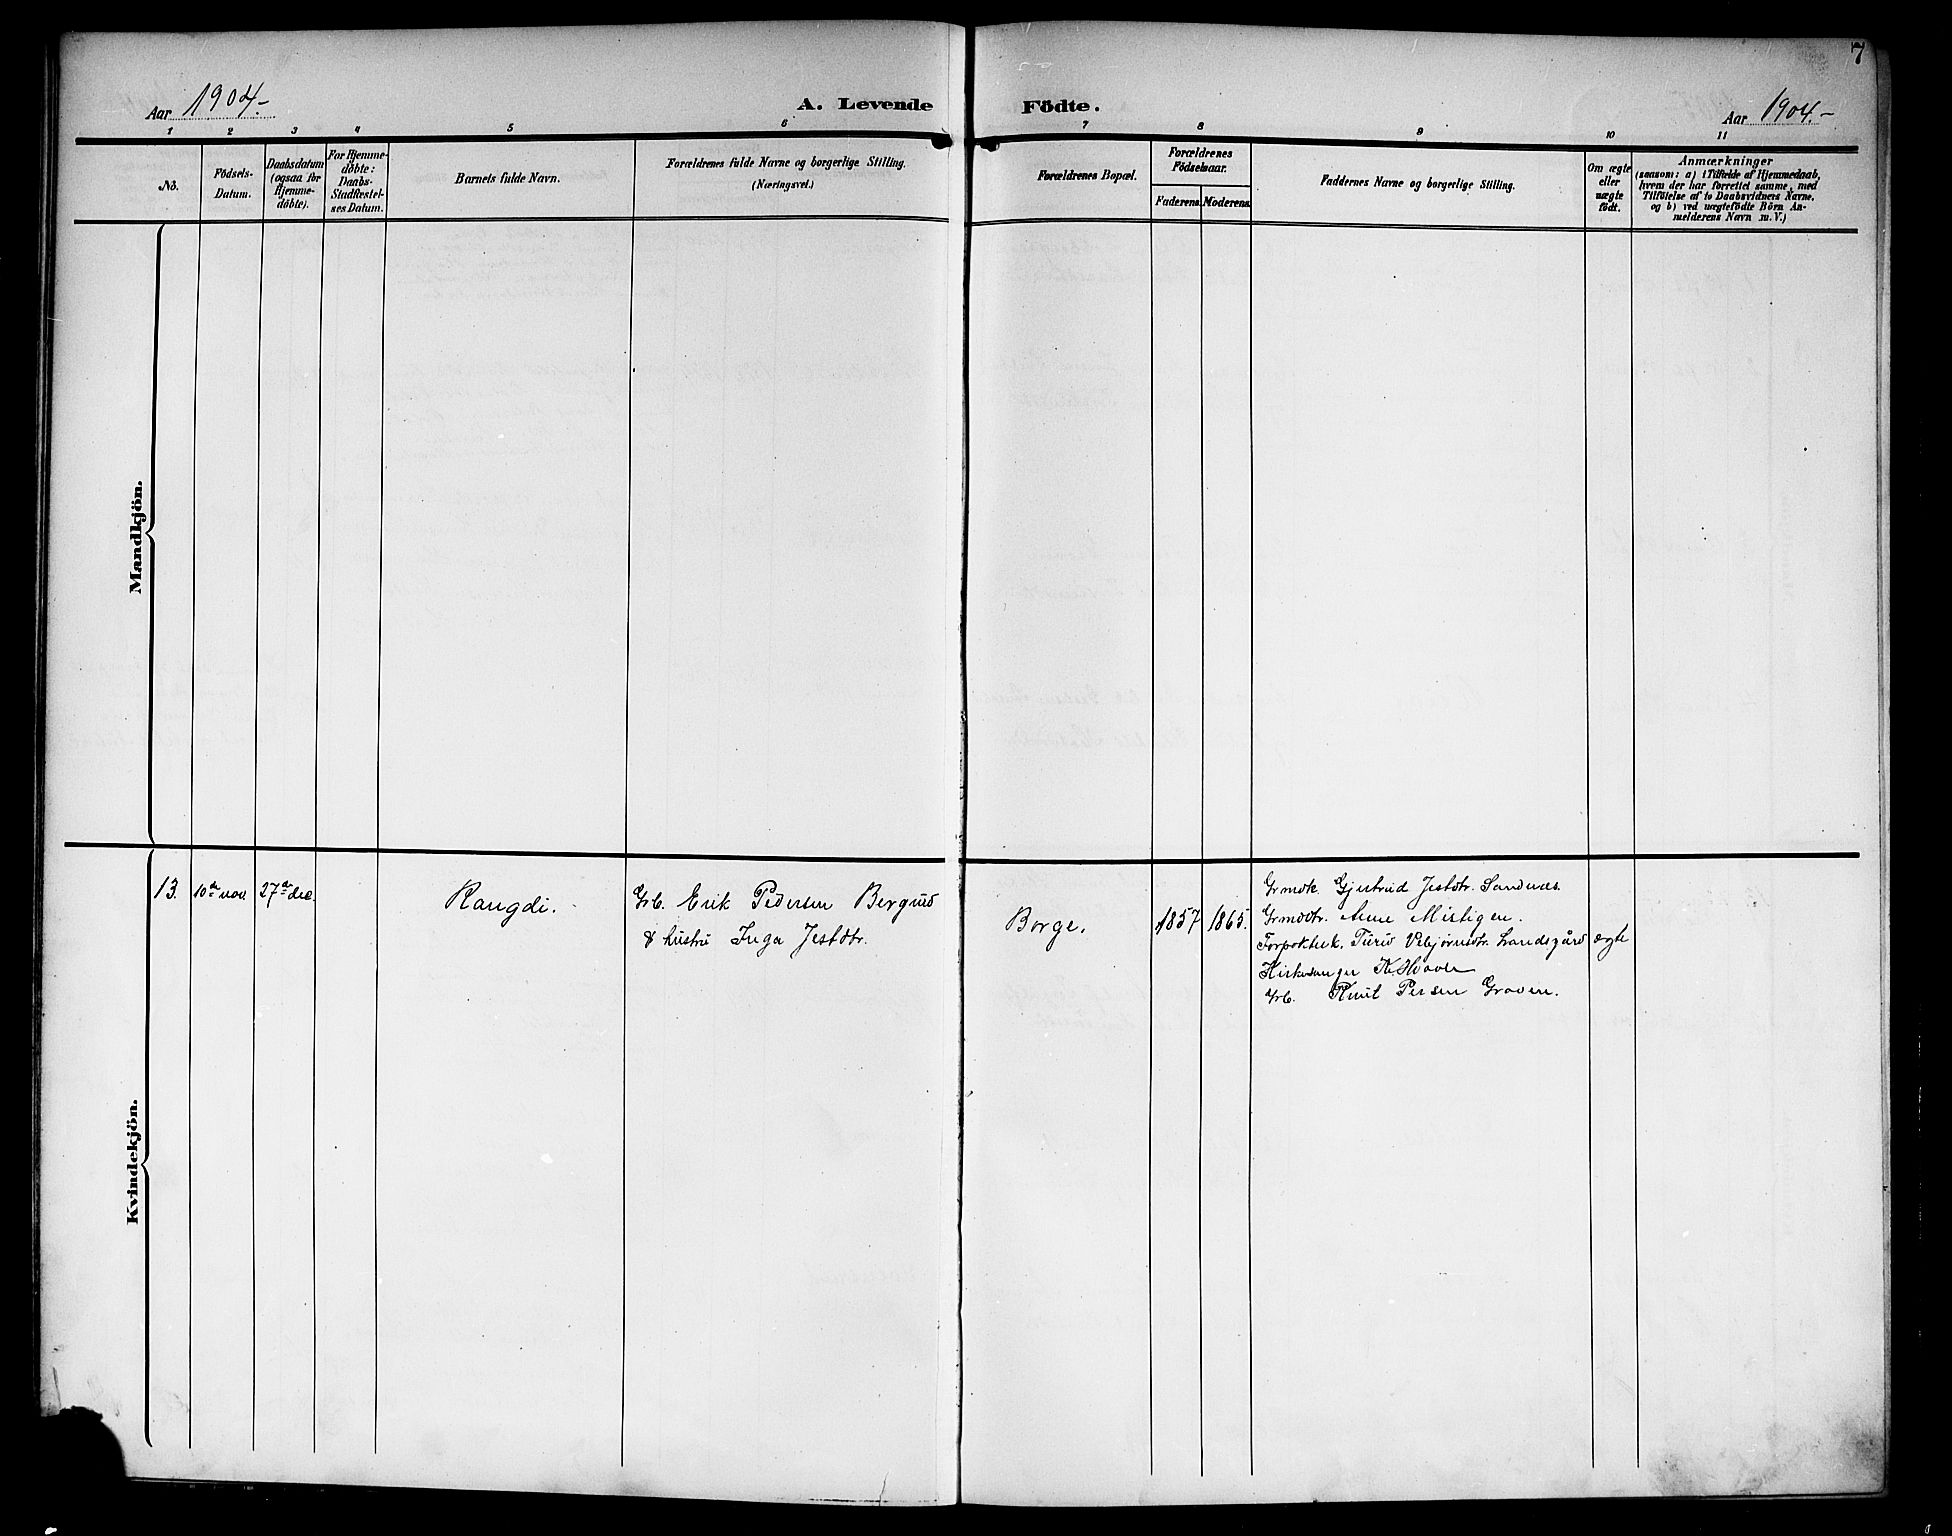 7
Aar 1904.-
A. Levende
Födte.
Aar 1904.-
1 2 3 4 5 6 7 8 9 10 11
No.
Födsels-
Datum.
Daabsdatum
(ogsaa for
Hjemme-
döbte).
For Hjemme-
döbte:
Daabs-
Stadfæstel-
ses Datum.
Barnets fulde Navn.
Forældrenes fulde Navne og borgerlige Stilling.
(Næringsvei.)
Forældrenes Bopæl.
Forældrenes
Födselsaar.
Faderens.
Moderens.
Faddernes Navne og borgerlige Stilling.
Om ægte
eller
uægte
födt.
Anmærkninger
(saasom: a) i Tilfælde af Hjemmedaab,
hvem der har forrettet samme, med
Tilföielse af to Daabsvidners Navne,
og b) ved uægtefödte Börn An-
melderens Navn m. V.)
Mandkjön.
Kvindekjön.
13.
10de nov.
27de dec.
Rangdi.
Grb. Erik Pedersen Bergrud
& hustru Inga Jestdtr.
Borge.
1857
1865.
Grmdk. Gjertrud Jestdtr. Sandnes.
Grmdtr. Anne Mistigen.
Forpaktek. Turid Vebjørnsdtr. Landsgård
Kirkesanger
Grb. Knut Persen Graven.
ægte